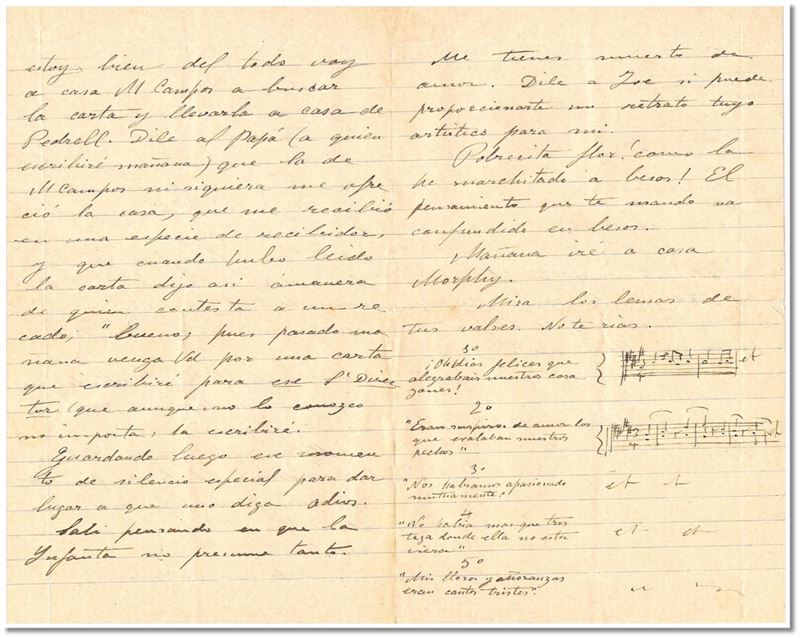 estoy bien del todo voy
a casa M Campos a buscar
la carta y llevarla a casa de
Pedrell. Dile al Papá (a quien
escribiré mañana) que la de
M Campos ni siquiera me ofre
ció la casa, que me recibió
en una especie de recibidor,
y que cuando hubo leido
la carta dijo asi ámanera
de quien contesta a un re
cado; "bueno; pues pasado ma
ñana venga Vd por una carta
que escribiré para ese Sr Direc
tor (que aunque no lo conozco
no importa, la escribiré.
Guardando luego ese momen
to de silencio especial para dar
lugar a que uno diga adios.
Sali pensando en que la
Infanta no presume tanto.
Me tienes muerto de
amor. Dile a Joe si puede
proporcionarte un retrato tuyo
artístico para mi.
Pobrecita flor! como la
he marchitado a besos! El
pensamiento que te mando va
confundido en besos.
Mañana iré a casa
Morphy.
Mira los lemas de
tus valses. No te rias.
¡Oh dias felices que
alegrabais nuestro cora
zones! et
2º
"Eran suspiros de amor los
que exalaban nuestros
pechos" et
3º
"Nos habiamos apasionado
mutuamente." et et
4
"No habia mas que tris
teza donde ella no estu
viera" et et
5º
"Mis lloros y añoranzas
eran cantos tristes".